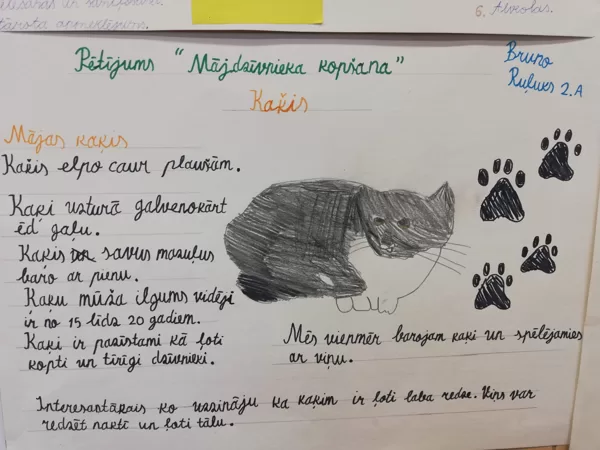 6. Atvēršas.
Pētījums "Mājdzīvnieka kopšana"
Bruno
Ruļuks 2.A
Kaķis
Mājas kaķis
Kaķis elpo caur plaušām.
Kaķi uzturā galvenokārt
ēd gaļu.
Kaķis savus mazuļus
baro ar pienu.
Kaķu mūža ilgums vidēji
ir no 15 līdz 20 gadiem.
Kaķi ir pazīstami kā ļoti
kopti un tīrīgi dzīvnieki.
Mēs vienmēr barojam kaķi un spēlējamies
ar viņu.
Interesantākais ko uzzināju ka kaķim ir ļoti laba redze. Viņs var
redzēt naktī un ļoti tālu.